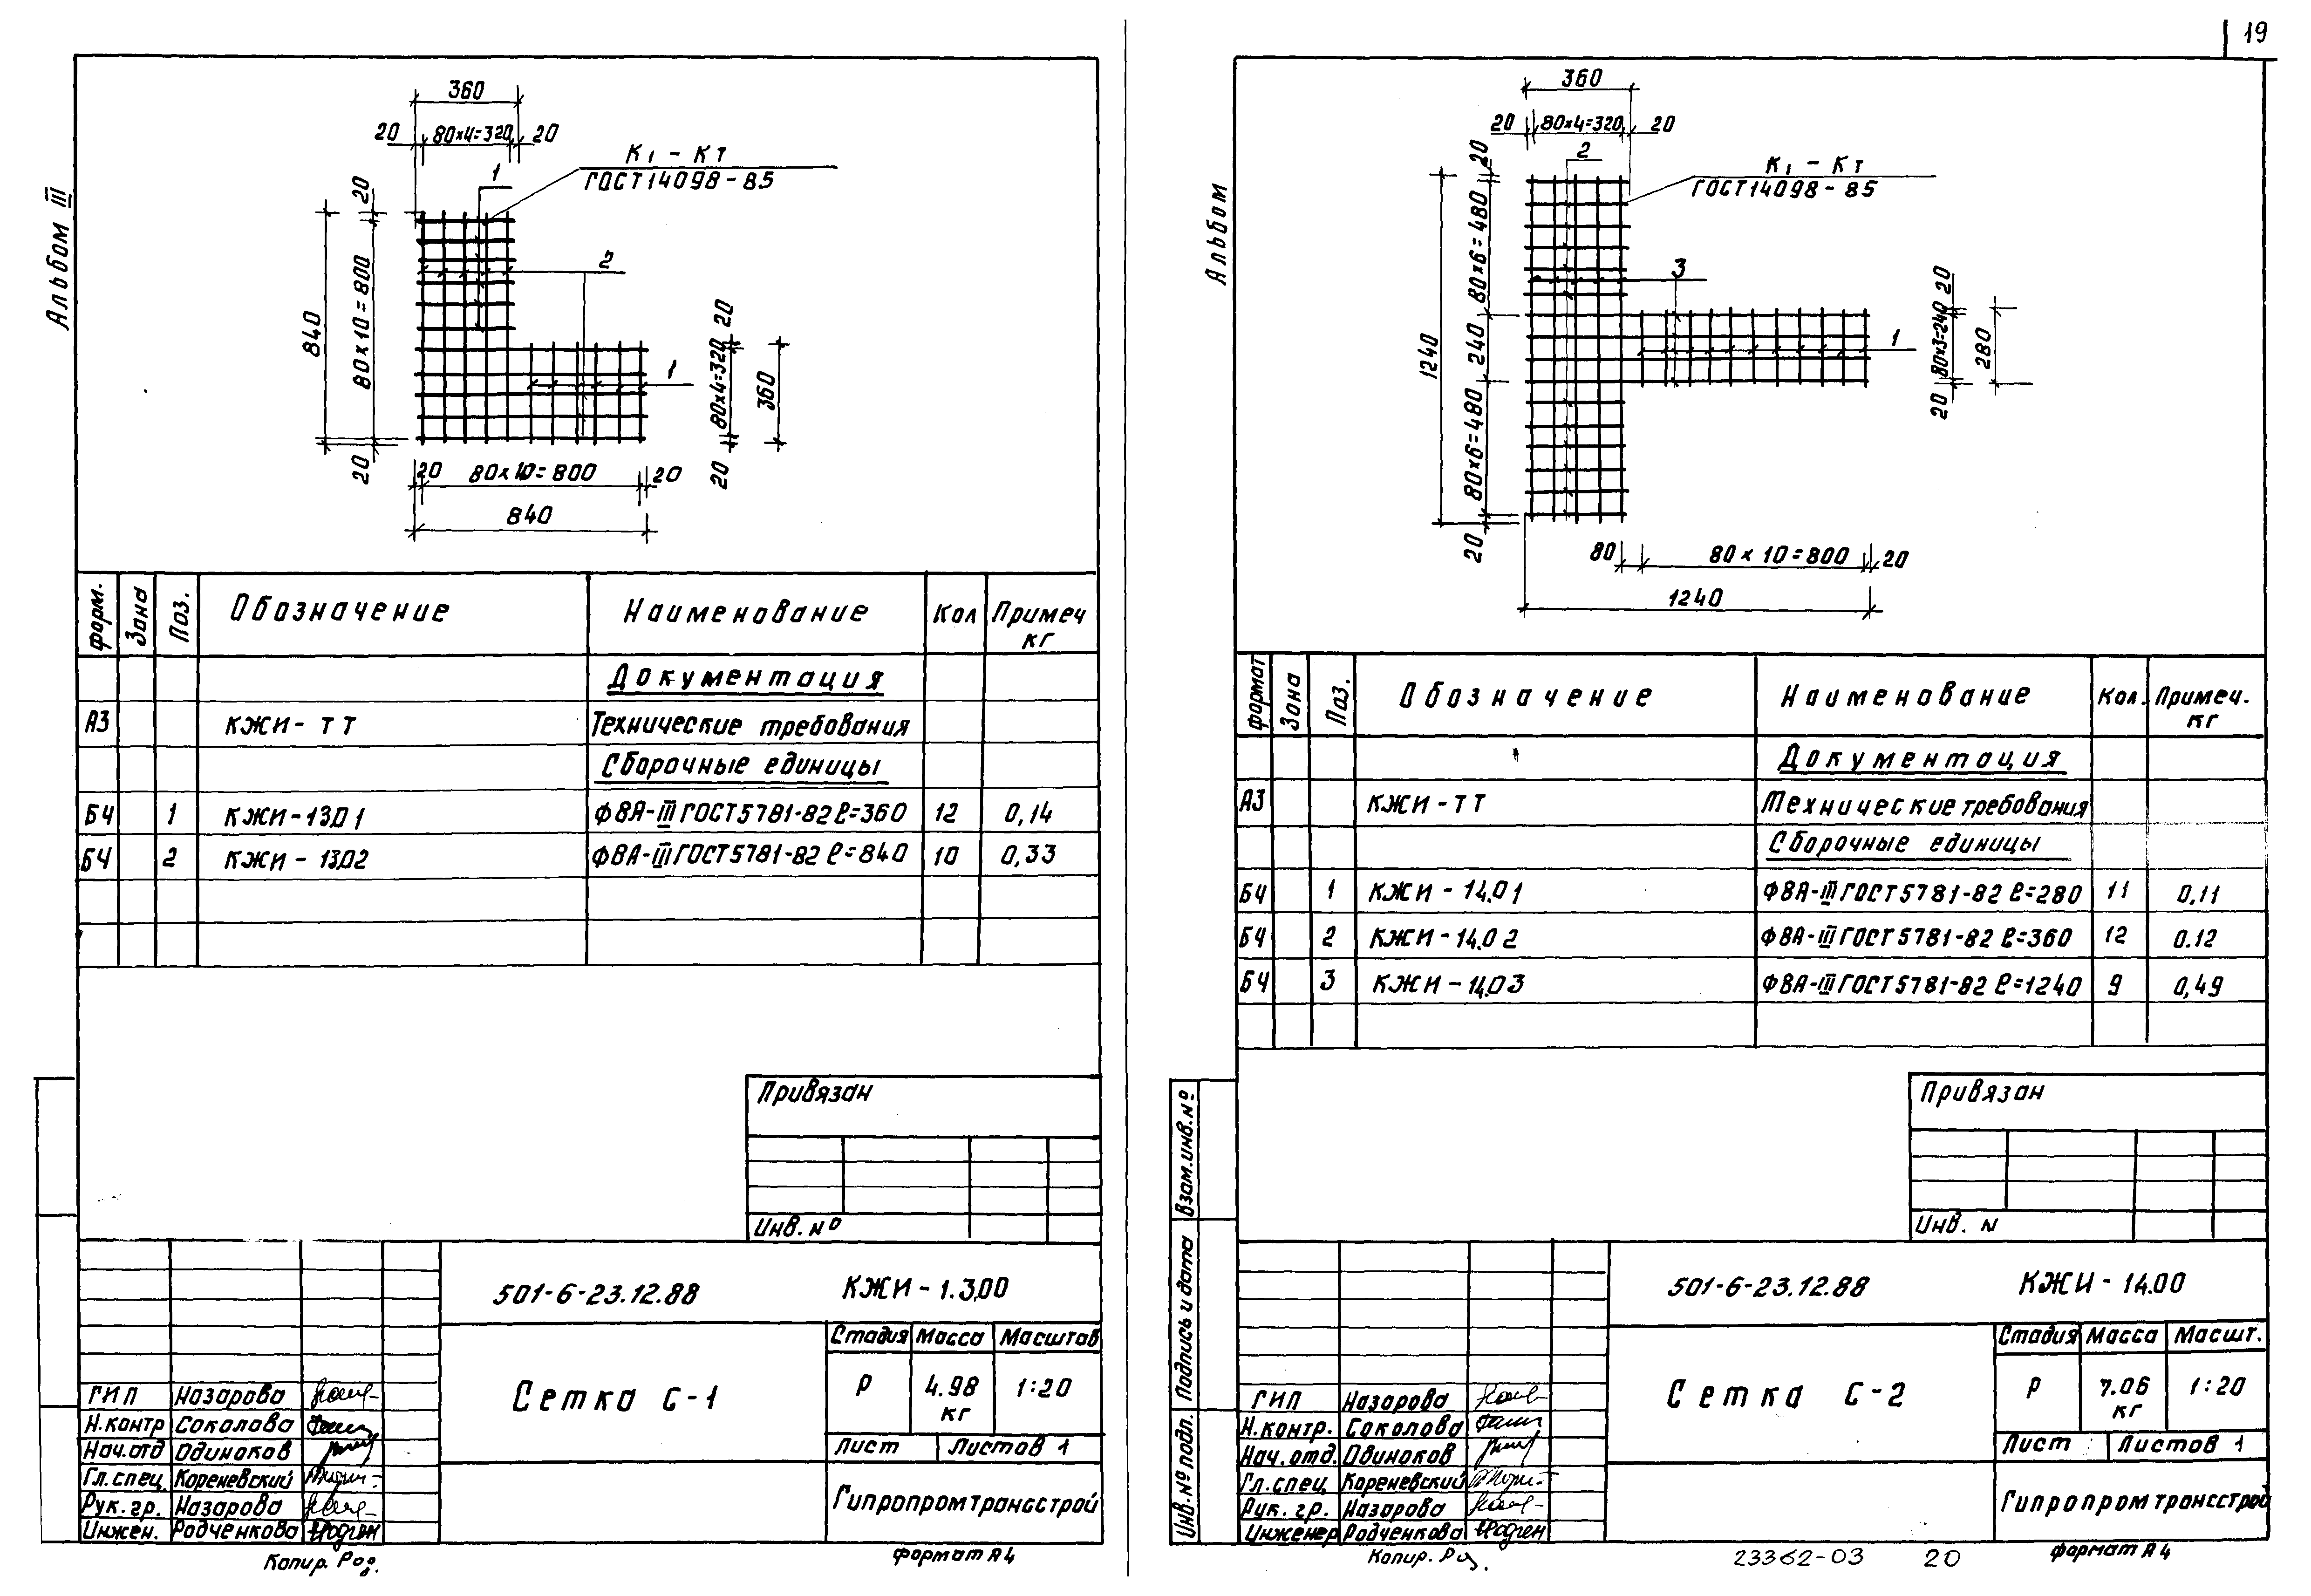 19
Альбом III
360
20 80×4=320 20
К1 - Кт
ГОСТ14098-85
1
2
1
20
80×10=800
20
840
20
80×4=320
20
360
20 80×10=800 20
840
Форм. Зона Поз. Обозначение Наименование Кол Примеч кг
Документация
А3 КЖИ-ТТ Технические требования
Сборочные единицы
БЧ 1 КЖИ-13.01 Ф8А-III ГОСТ5781-82 ℓ=360 12 0,14
БЧ 2 КЖИ-13.02 Ф8А-III ГОСТ5781-82 ℓ=840 10 0,33
Привязан
Инв. №
501-6-23.12.88 КЖИ-1.3.00
Стадия Масса Масштаб
Сетка С-1
Р 4.98 кг 1:20
Лист Листов 1
Гипропромтрансстрой
ГИП Назарова
Н.контр Соколова
Нач.отд Одиноков
Гл.спец Кореневский
Рук.гр. Назарова
Инжен. Родченкова
Копир. Род.
Формат А4
Альбом
360
20 80×4=320 20
2
К1 - Кт
ГОСТ14098-85
3
1
20
80×6=480
240
80×6=480
20
1240
20
80×3=240
20
280
80 80×10=800 20
1240
Формат Зона Поз. Обозначение Наименование Кол. Примеч. кг
Документация
А3 КЖИ-ТТ Технические требования
Сборочные единицы
БЧ 1 КЖИ-14.01 Ф8А-III ГОСТ5781-82 ℓ=280 11 0,11
БЧ 2 КЖИ-14.02 Ф8А-III ГОСТ5781-82 ℓ=360 12 0.12
БЧ 3 КЖИ-14.03 Ф8А-III ГОСТ5781-82 ℓ=1240 9 0,49
Привязан
Инв. N
Взам.инв.№
Подпись и дата
Инв.№ подл.
501-6-23.12.88 КЖИ-14.00
Стадия Масса Масшт.
Сетка С-2
Р 7.06 кг 1:20
Лист Листов 1
Гипропромтрансстрой
ГИП Назарова
Н.контр. Соколова
Нач.отд. Одиноков
Гл.спец Кореневский
Рук.гр. Назарова
Инженер Родченкова
Копир.
23362-03 20
Формат А4